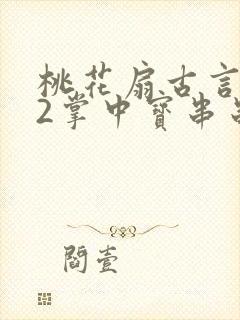 桃花扇古言
2掌中寳串
閻壹